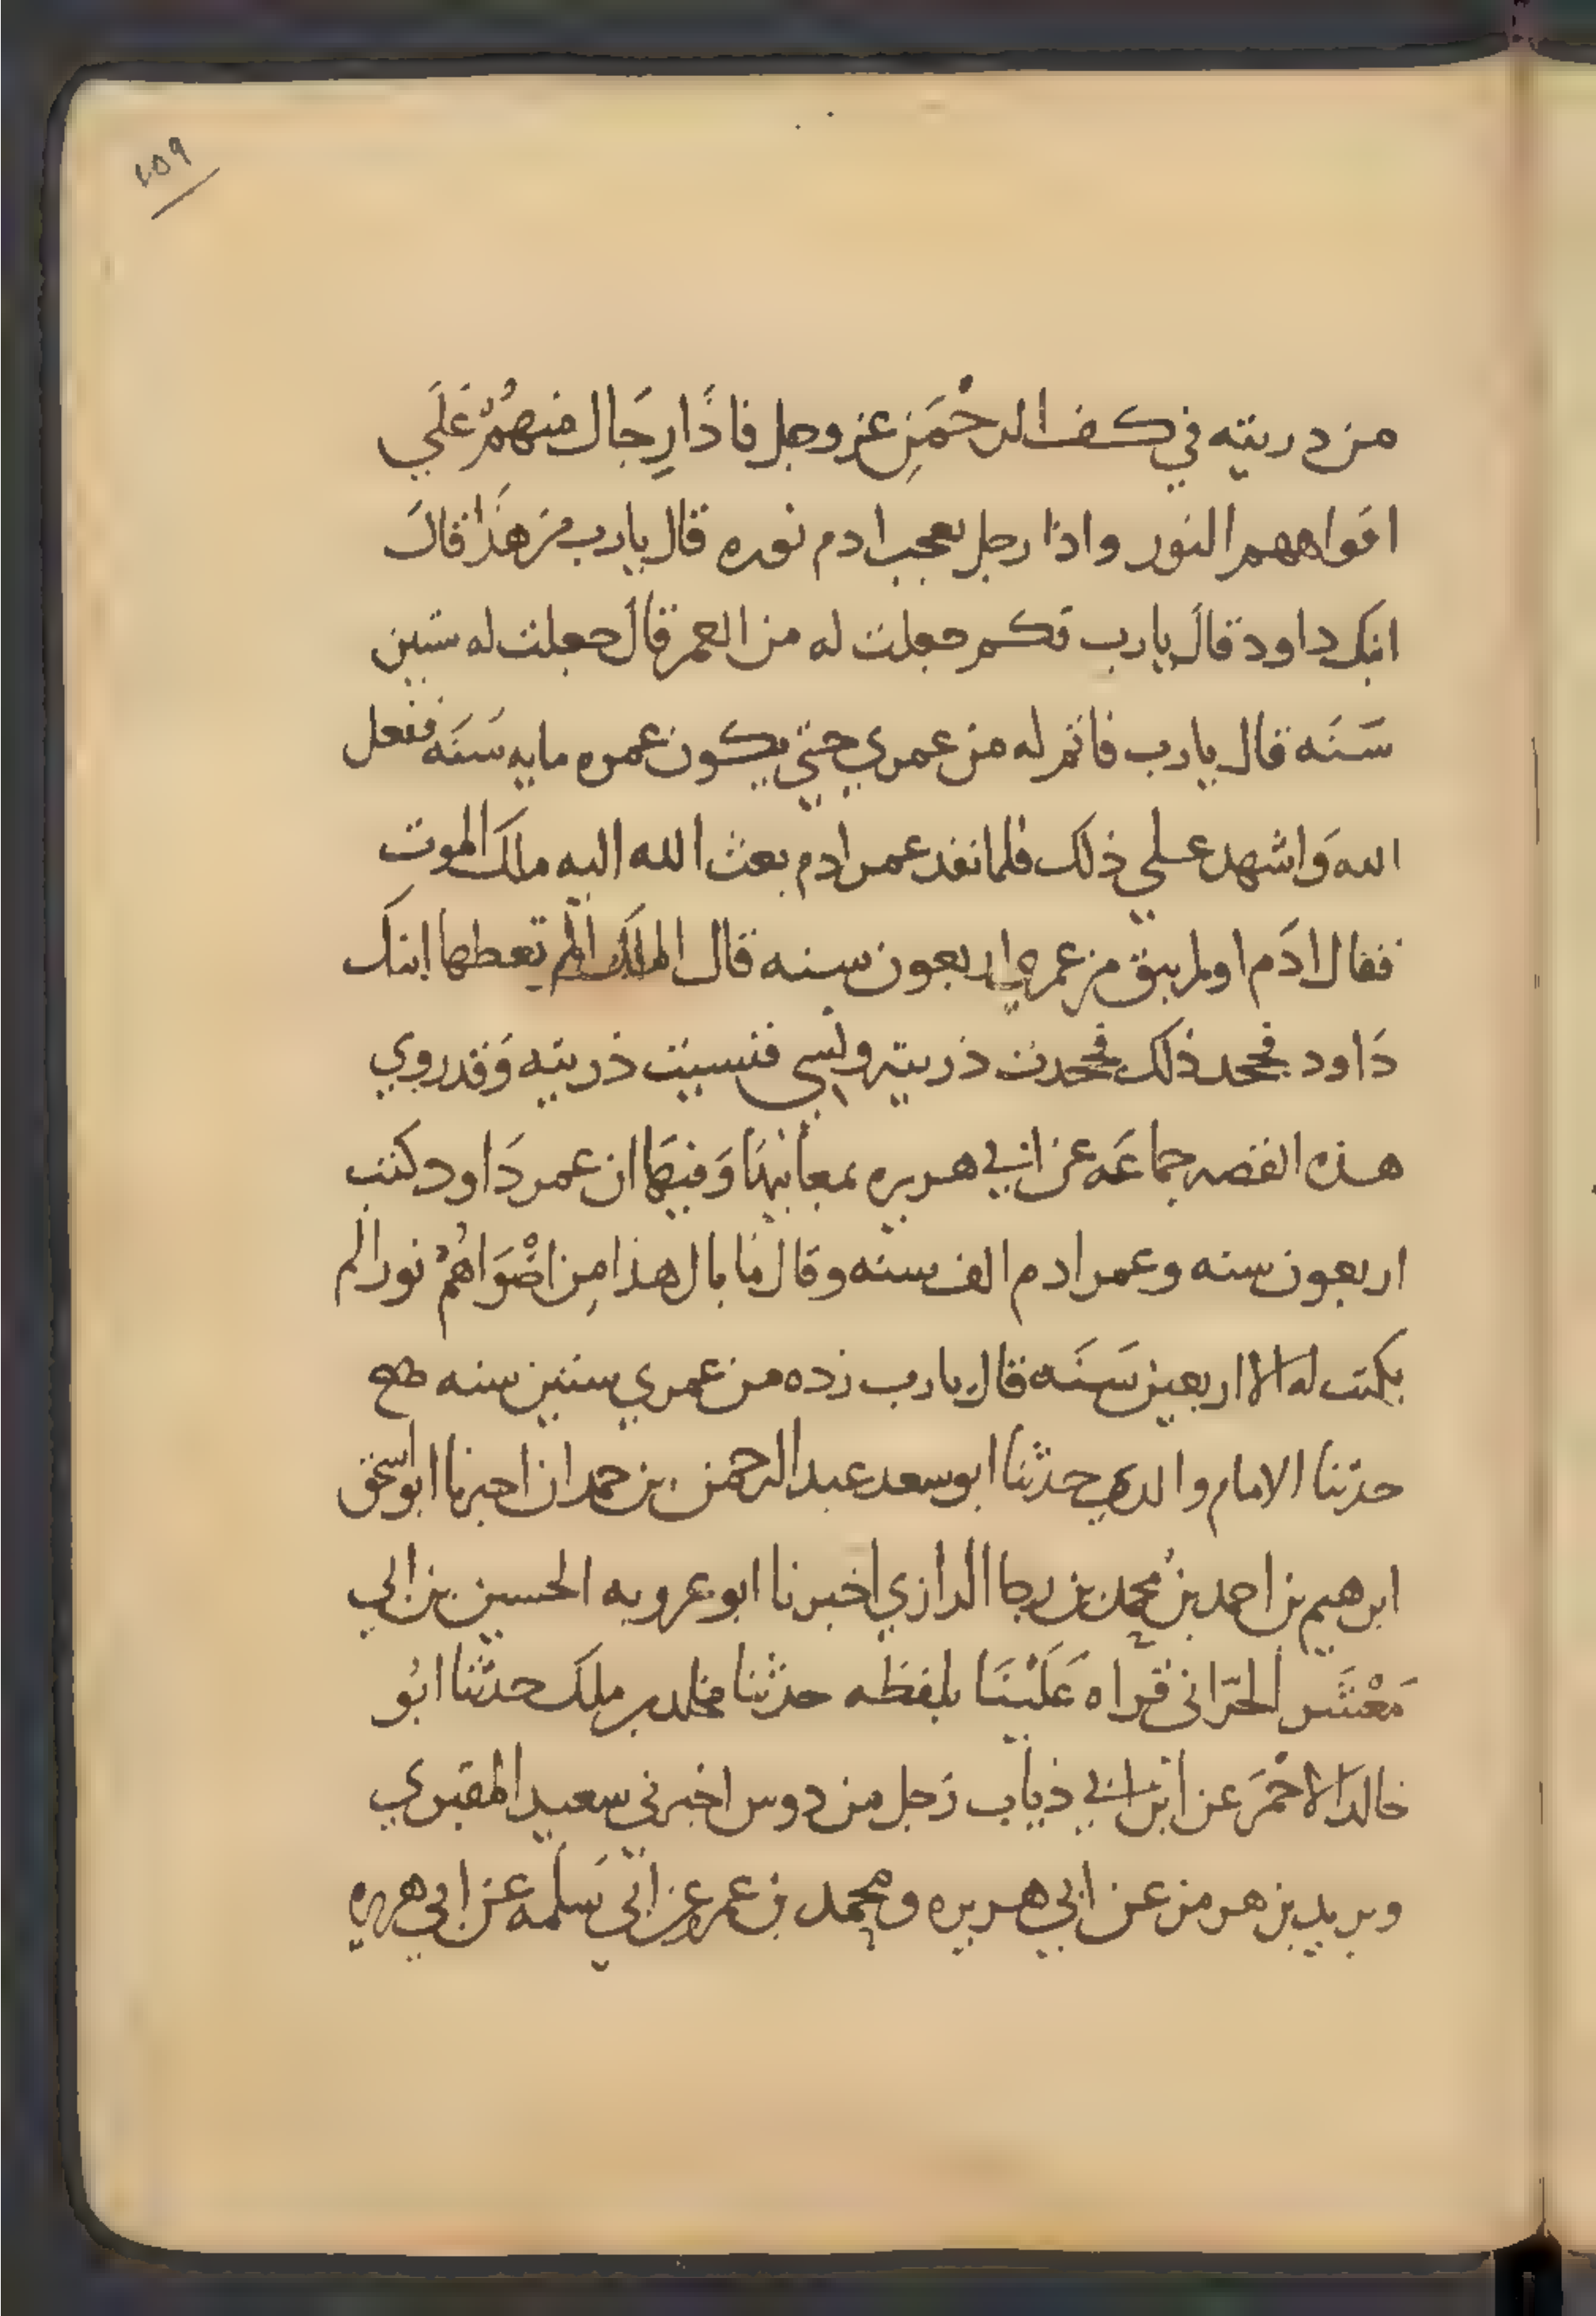 ٤٥٩
من دريته في كف الرحْمَنِ عز وجل فاذَا رِجَال فيهُمْ عَلَي
افواههم النور واذا رجل يعجب ادم نوره قال يارب من هَذَا قال
ابنك داود قالَ يارب فكم جعلت له من العمر قالَ جعلت له ستين
سَنَه قال يارب فاتم له من عمري حتي يكون عمره مايه سَنَه ففعل
الله وَاشهد علي ذلك فلما نفد عمر ادم بعث الله اليه ملك الموت
فقال ادَم اولم يبق من عمري اربعون سنه قال الملَك الم تعطها ابنك
دَاود فجحد ذلك فجحدت ذريته ونسي فنسيت ذريته وَقد روي
هذه القصه جماعَه عن ابي هريره بمعانيها وَفيهَا ان عمر دَاود كتب
اربعون سنه وعمر ادم الف سنه وقال مَا بال هذا مِن اضْوَاهُمْ نورا لم
يكتب له الا اربعين سَنَه قال يارب زده من عمري ستين سنه صح
حدثنا الامام والدي حدثنا ابو سعد عبد الرحمن بن حمدان اخبرنا ابو اسحق
ابرهيم بن احمد بن محُمد بن رجا الرازي اخبرنا ابو عروبه الحسين بن ابي
مَعْشَر الحَرّاني قراه عَلَيْنَا بلفظه حدثنا مخلد بن ملك حدثنا ابُو
خالد الاحْمَر عن ابن ابي ذياب رَجل من دوس اخبرني سعيد المقبري
ويزيد بن هرمز عن ابي هريره ومحمد بن عمر عن ابي سَلمه عن ابي هريره